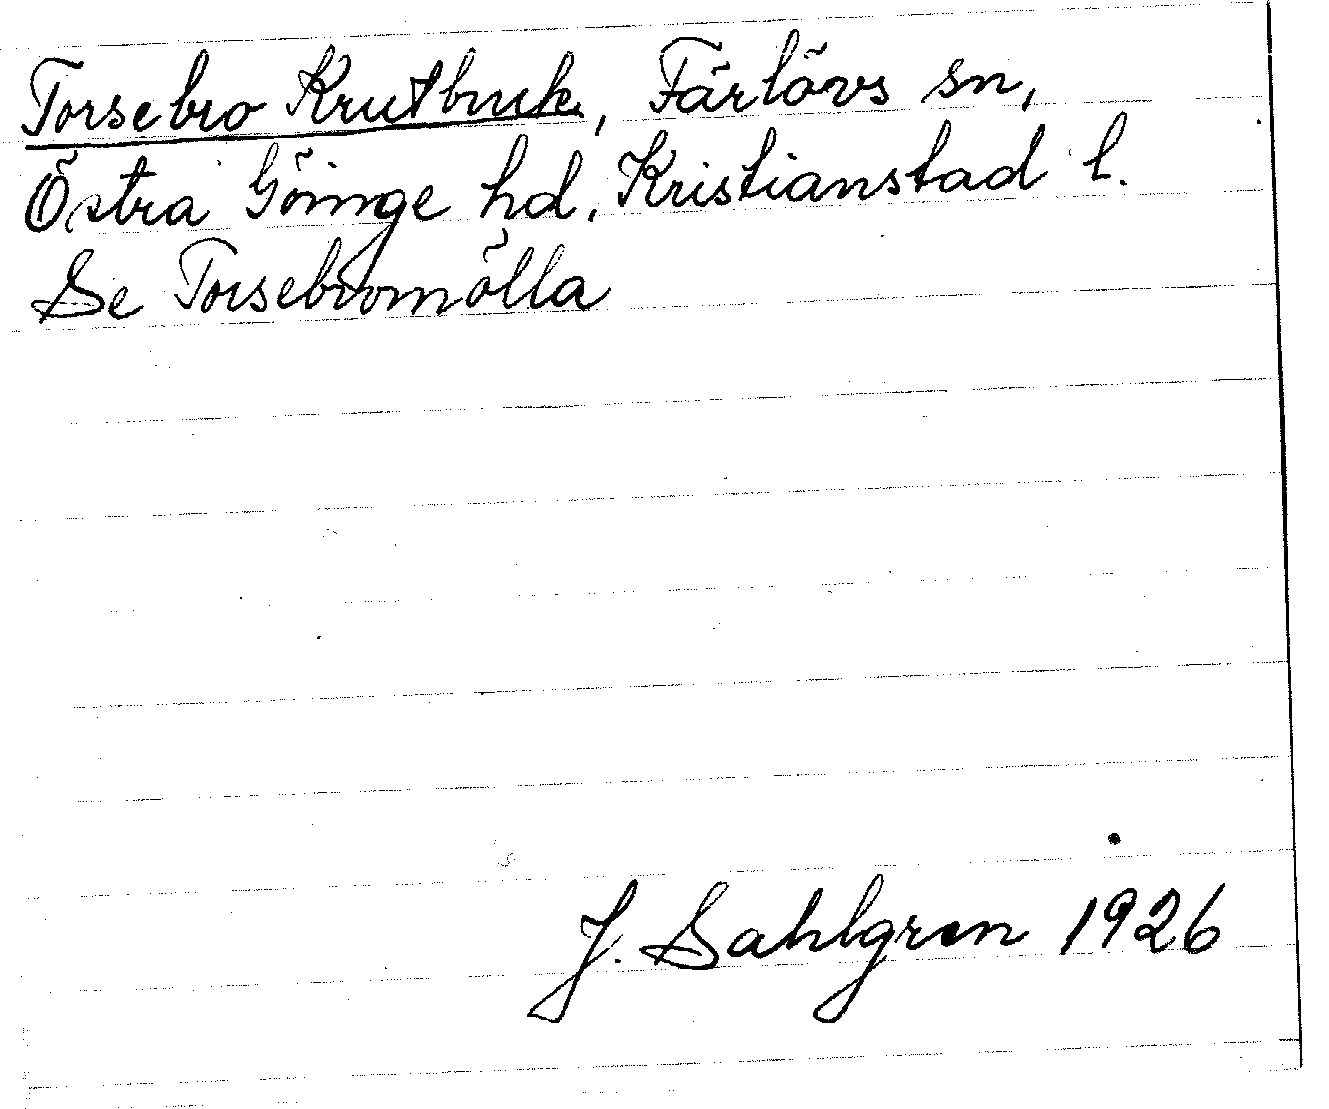 Torsebro Krutbruk, Färlövs sn,
Östra Göinge hd. Kristianstad l.
Se Torsebromölla
J. Sahlgren 1926